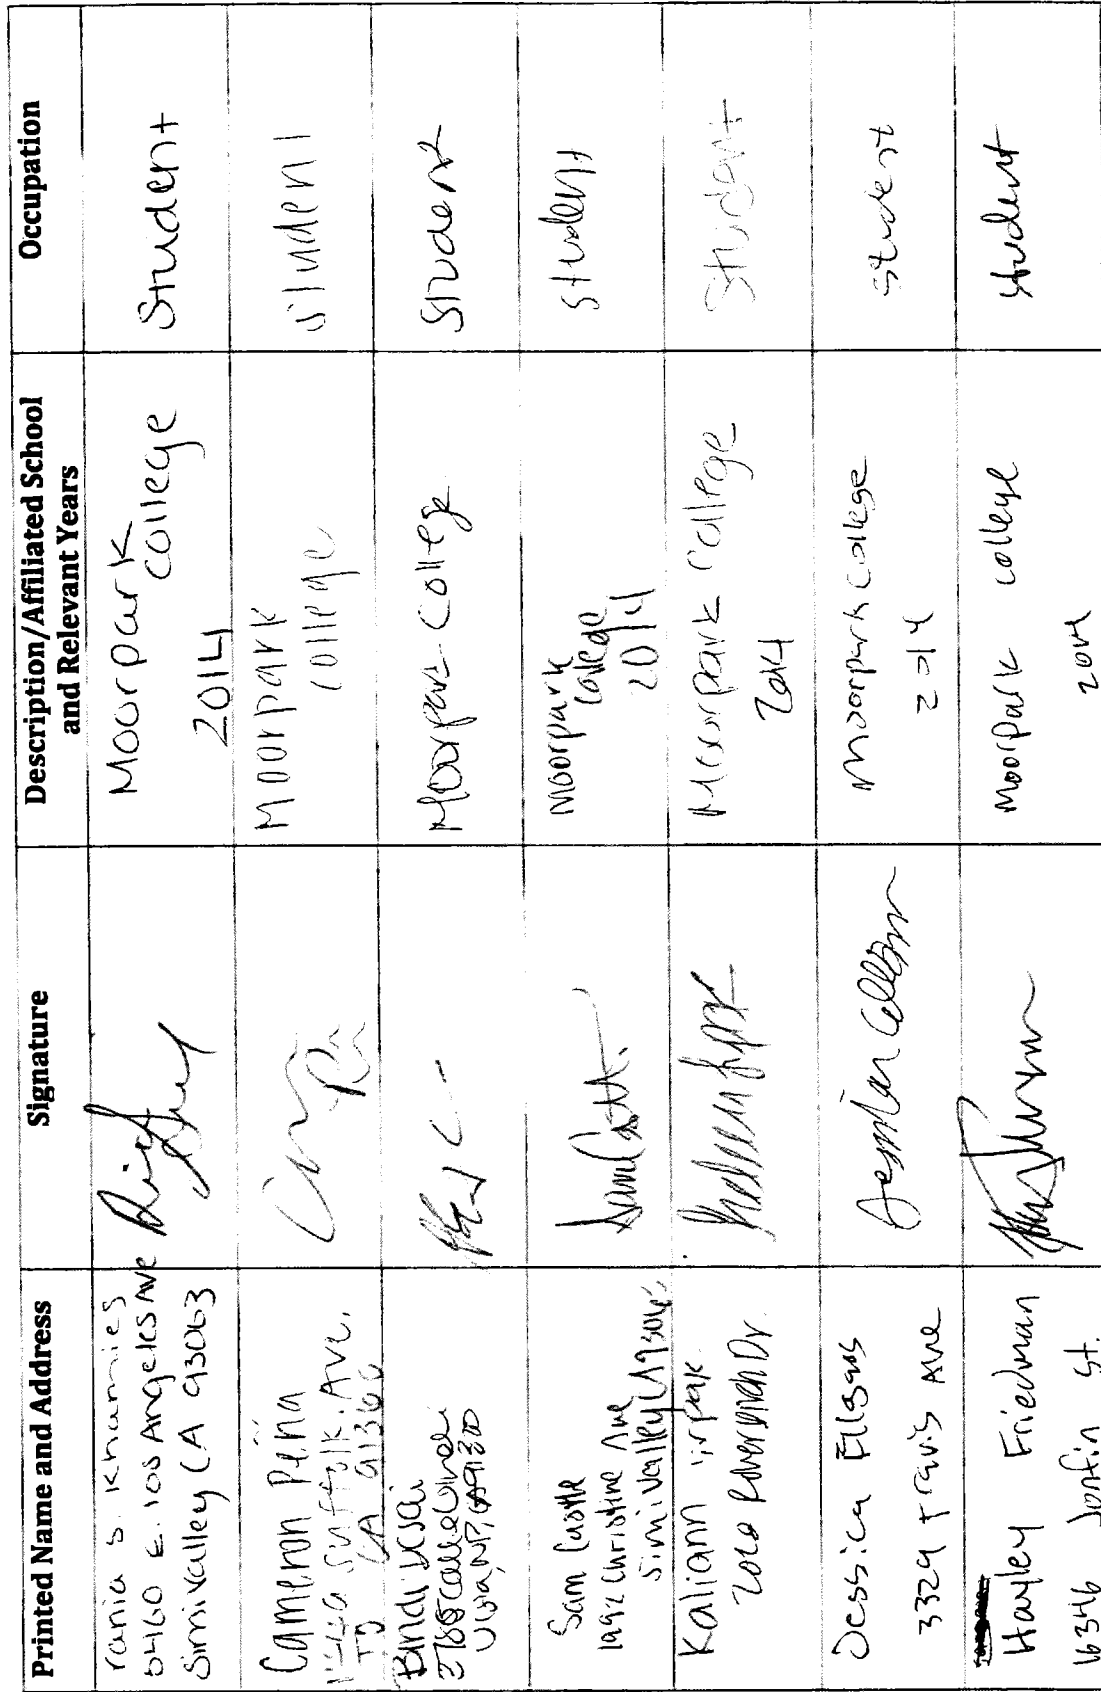 Printed Name and Address
Signature
Description/Affiliated School
and Relevant Years
Occupation
rania s. Khamies
5460 E. los Angeles Ave
Simi Valley CA 93063
Moorpark
college
2014
Student
Cameron Peña
Suffolk Ave.
TO CA 91360
Moorpark
college
student
Moorpark College
Student
Sam Castle
1992 Christine Ave
Simi Valley CA
Moorpark
College
2014
student
Kaliann
Dr
Moorpark College
2014
Student
Jessica
3329 Travis Ave
Moorpark College
2014
student
Hayley Friedman
16346 St.
Moorpark college
2014
student